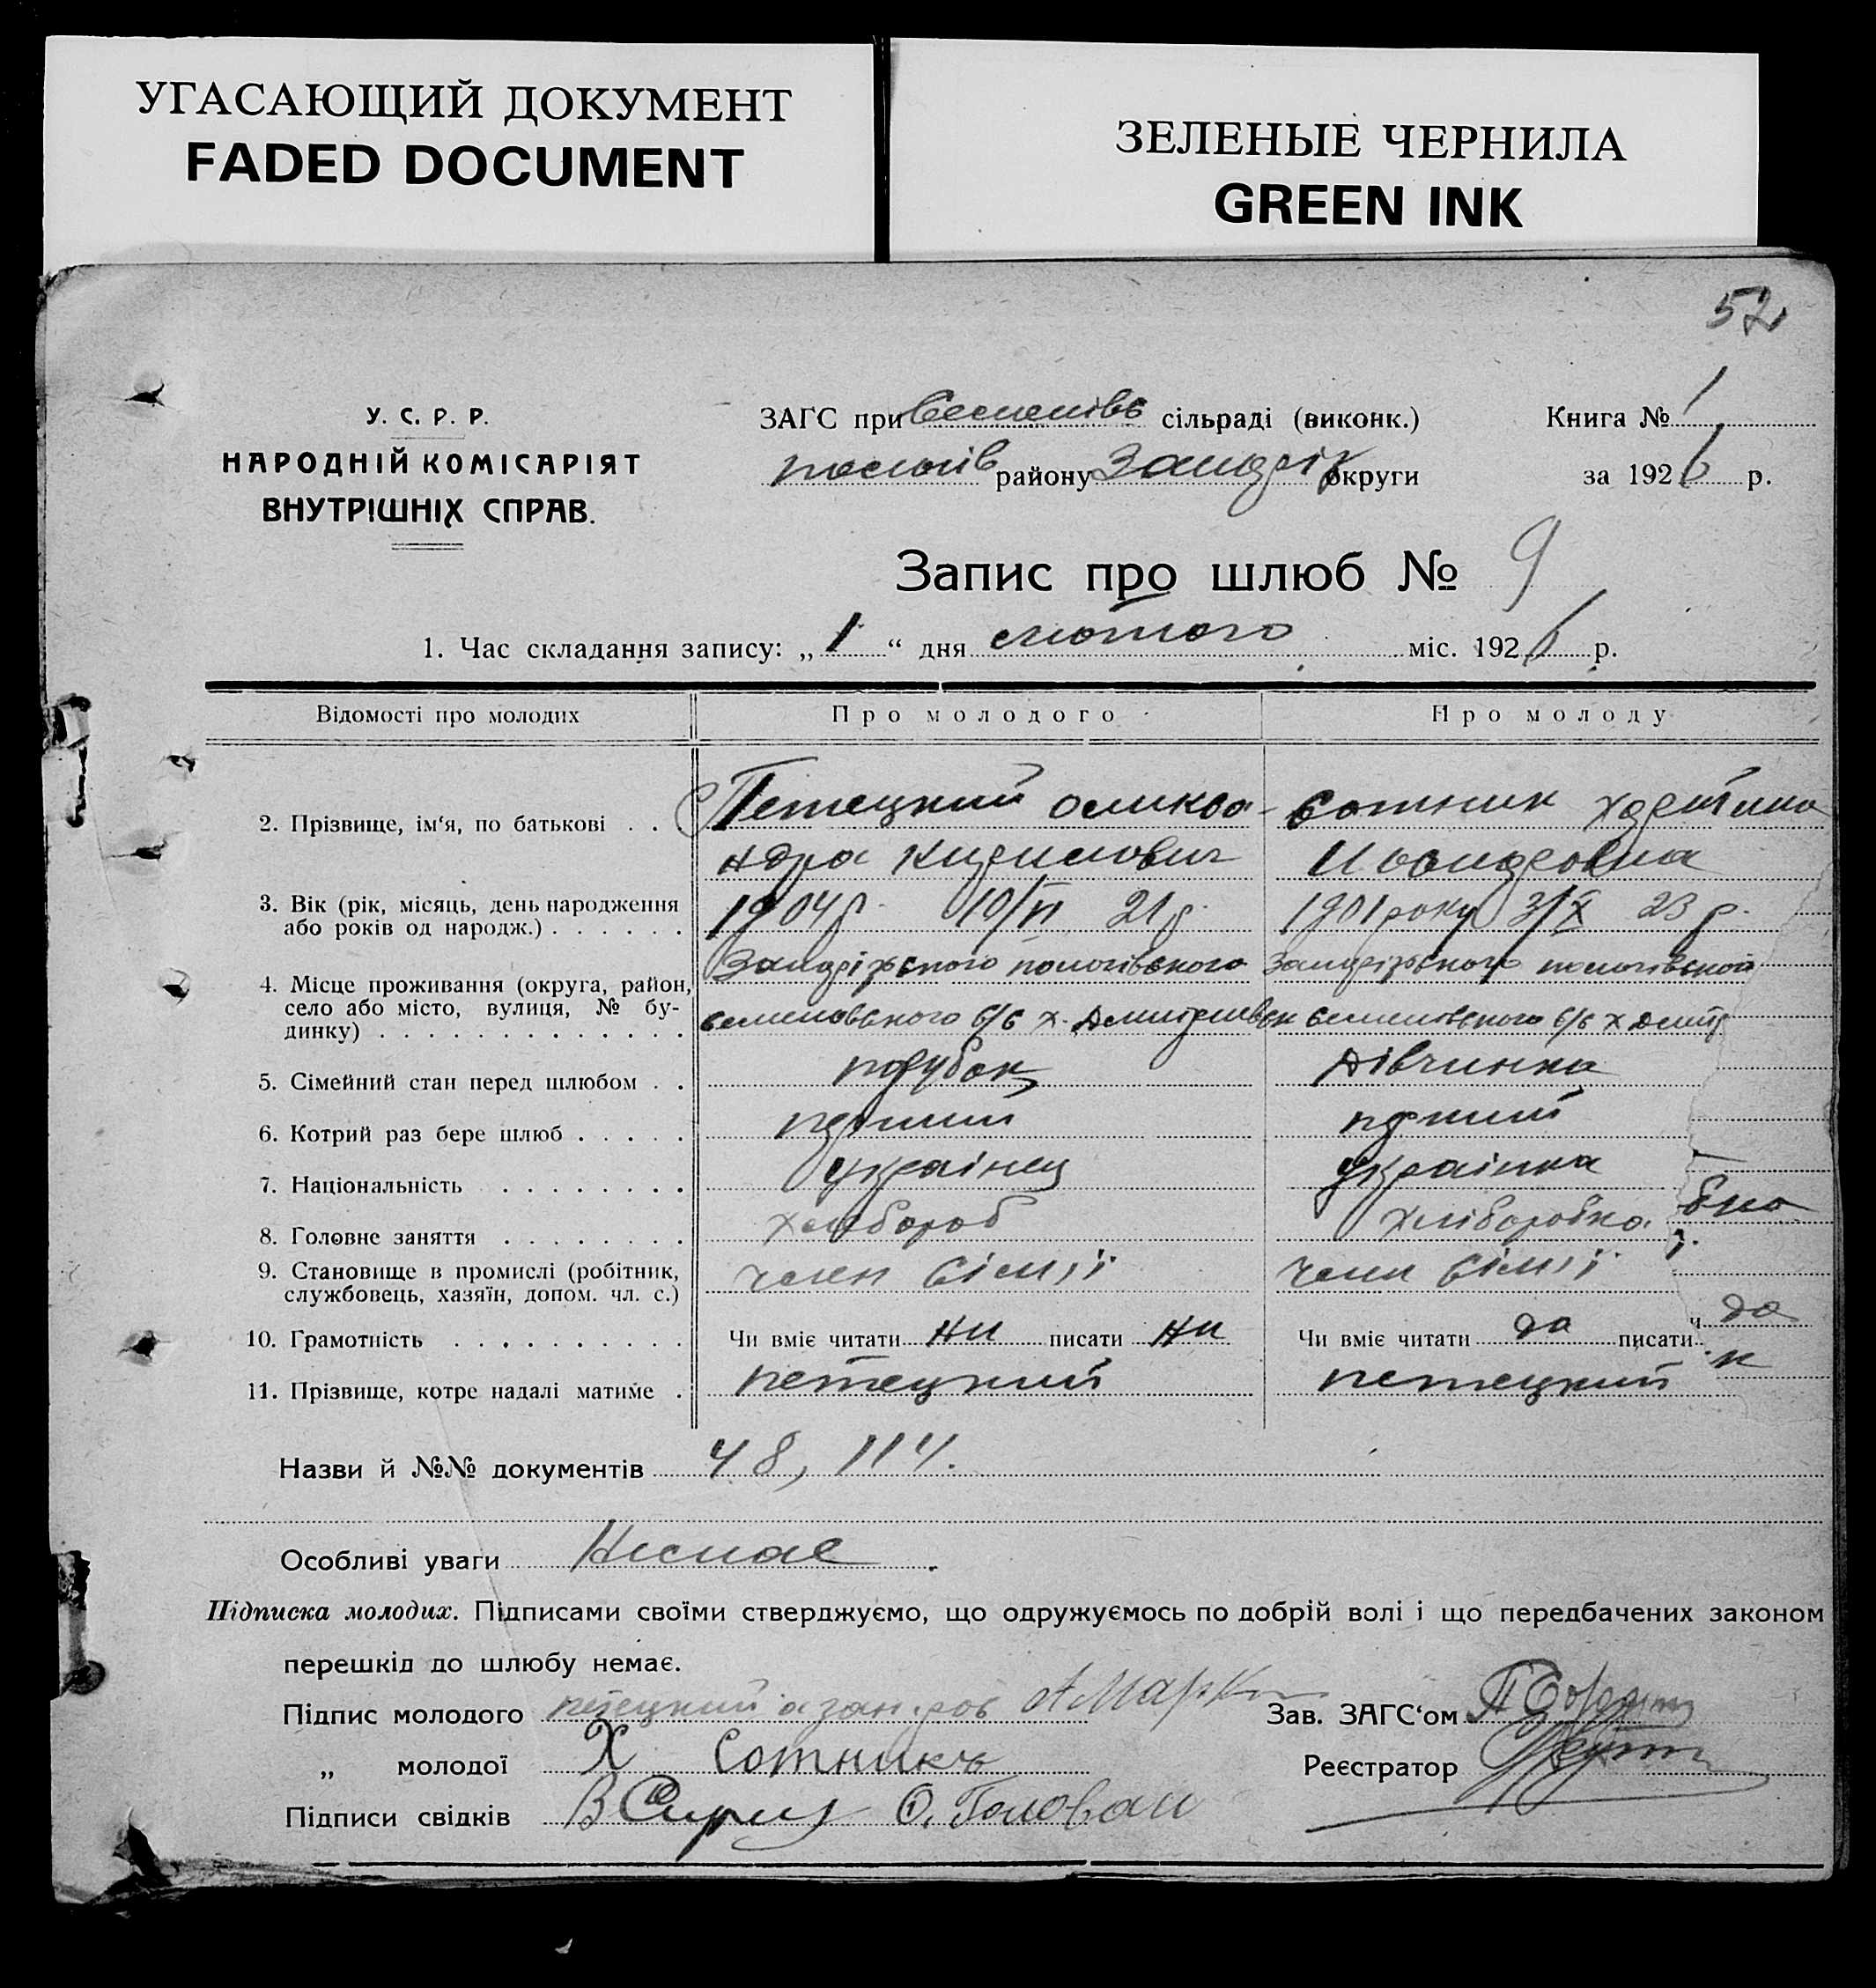 УГАСАЮЩИЙ ДОКУМЕНТ
FADED DOCUMENT
ЗЕЛЕНЫЕ ЧЕРНИЛА
GREEN INK
52
У. С. Р. Р.
НАРОДНІЙ КОМІСАРІЯТ
ВНУТРІШНІХ СПРАВ.
ЗАГС при Семенівс сільраді (виконк.) Книга № 1
пологів району Запоріз округи за 1926 р.
Запис про шлюб № 9
1. Час складання запису: „1“ дня лютого міс. 1926 р.
Відомості про молодих Про молодого Про молоду
2. Прізвище, ім‘я, по батькові . . Петецкий оликса- сотник харитина
ндра Кирилович
3. Вік (рік, місяць, день народження 1904р. 10/VI 21р. 1901року 3/X 23 р.
або років од народж.) . . . . . .
Запорізьского пологівского Запорізьского пологівского
4. Місце проживання (округа, район,
село або місто, вулиця, № бу- семеновского с/с х. семеновского с/с х
динку) . . . . . . . . . . . . .
5. Сімейний стан перед шлюбом . . парубок дівчинка
6. Котрий раз бере шлюб . . . . . перший перший
7. Національність . . . . . . . . українец українка
8. Головне заняття . . . . . . . . хлібороб хліборобка
9. Становище в промислі (робітник, член сімії член сімії
службовець, хазяїн, допом. чл. с.)
10. Грамотність . . . . . . . . . . Чи вміє читати ни писати ни Чи вміє читати да писати да
11. Прізвище, котре надалі матиме . петецкий петецкий
Назви й №№ документів 48, 114.
Особливі уваги Немае
Підписка молодих. Підписами своїми стверджуємо, що одружуємось по добрій волі і що передбачених законом
перешкід до шлюбу немає.
Підпис молодого петецкий Зав. ЗАГС‘ом
„ молодої Х Сотникъ Реєстратор
Підписи свідків О. Голован